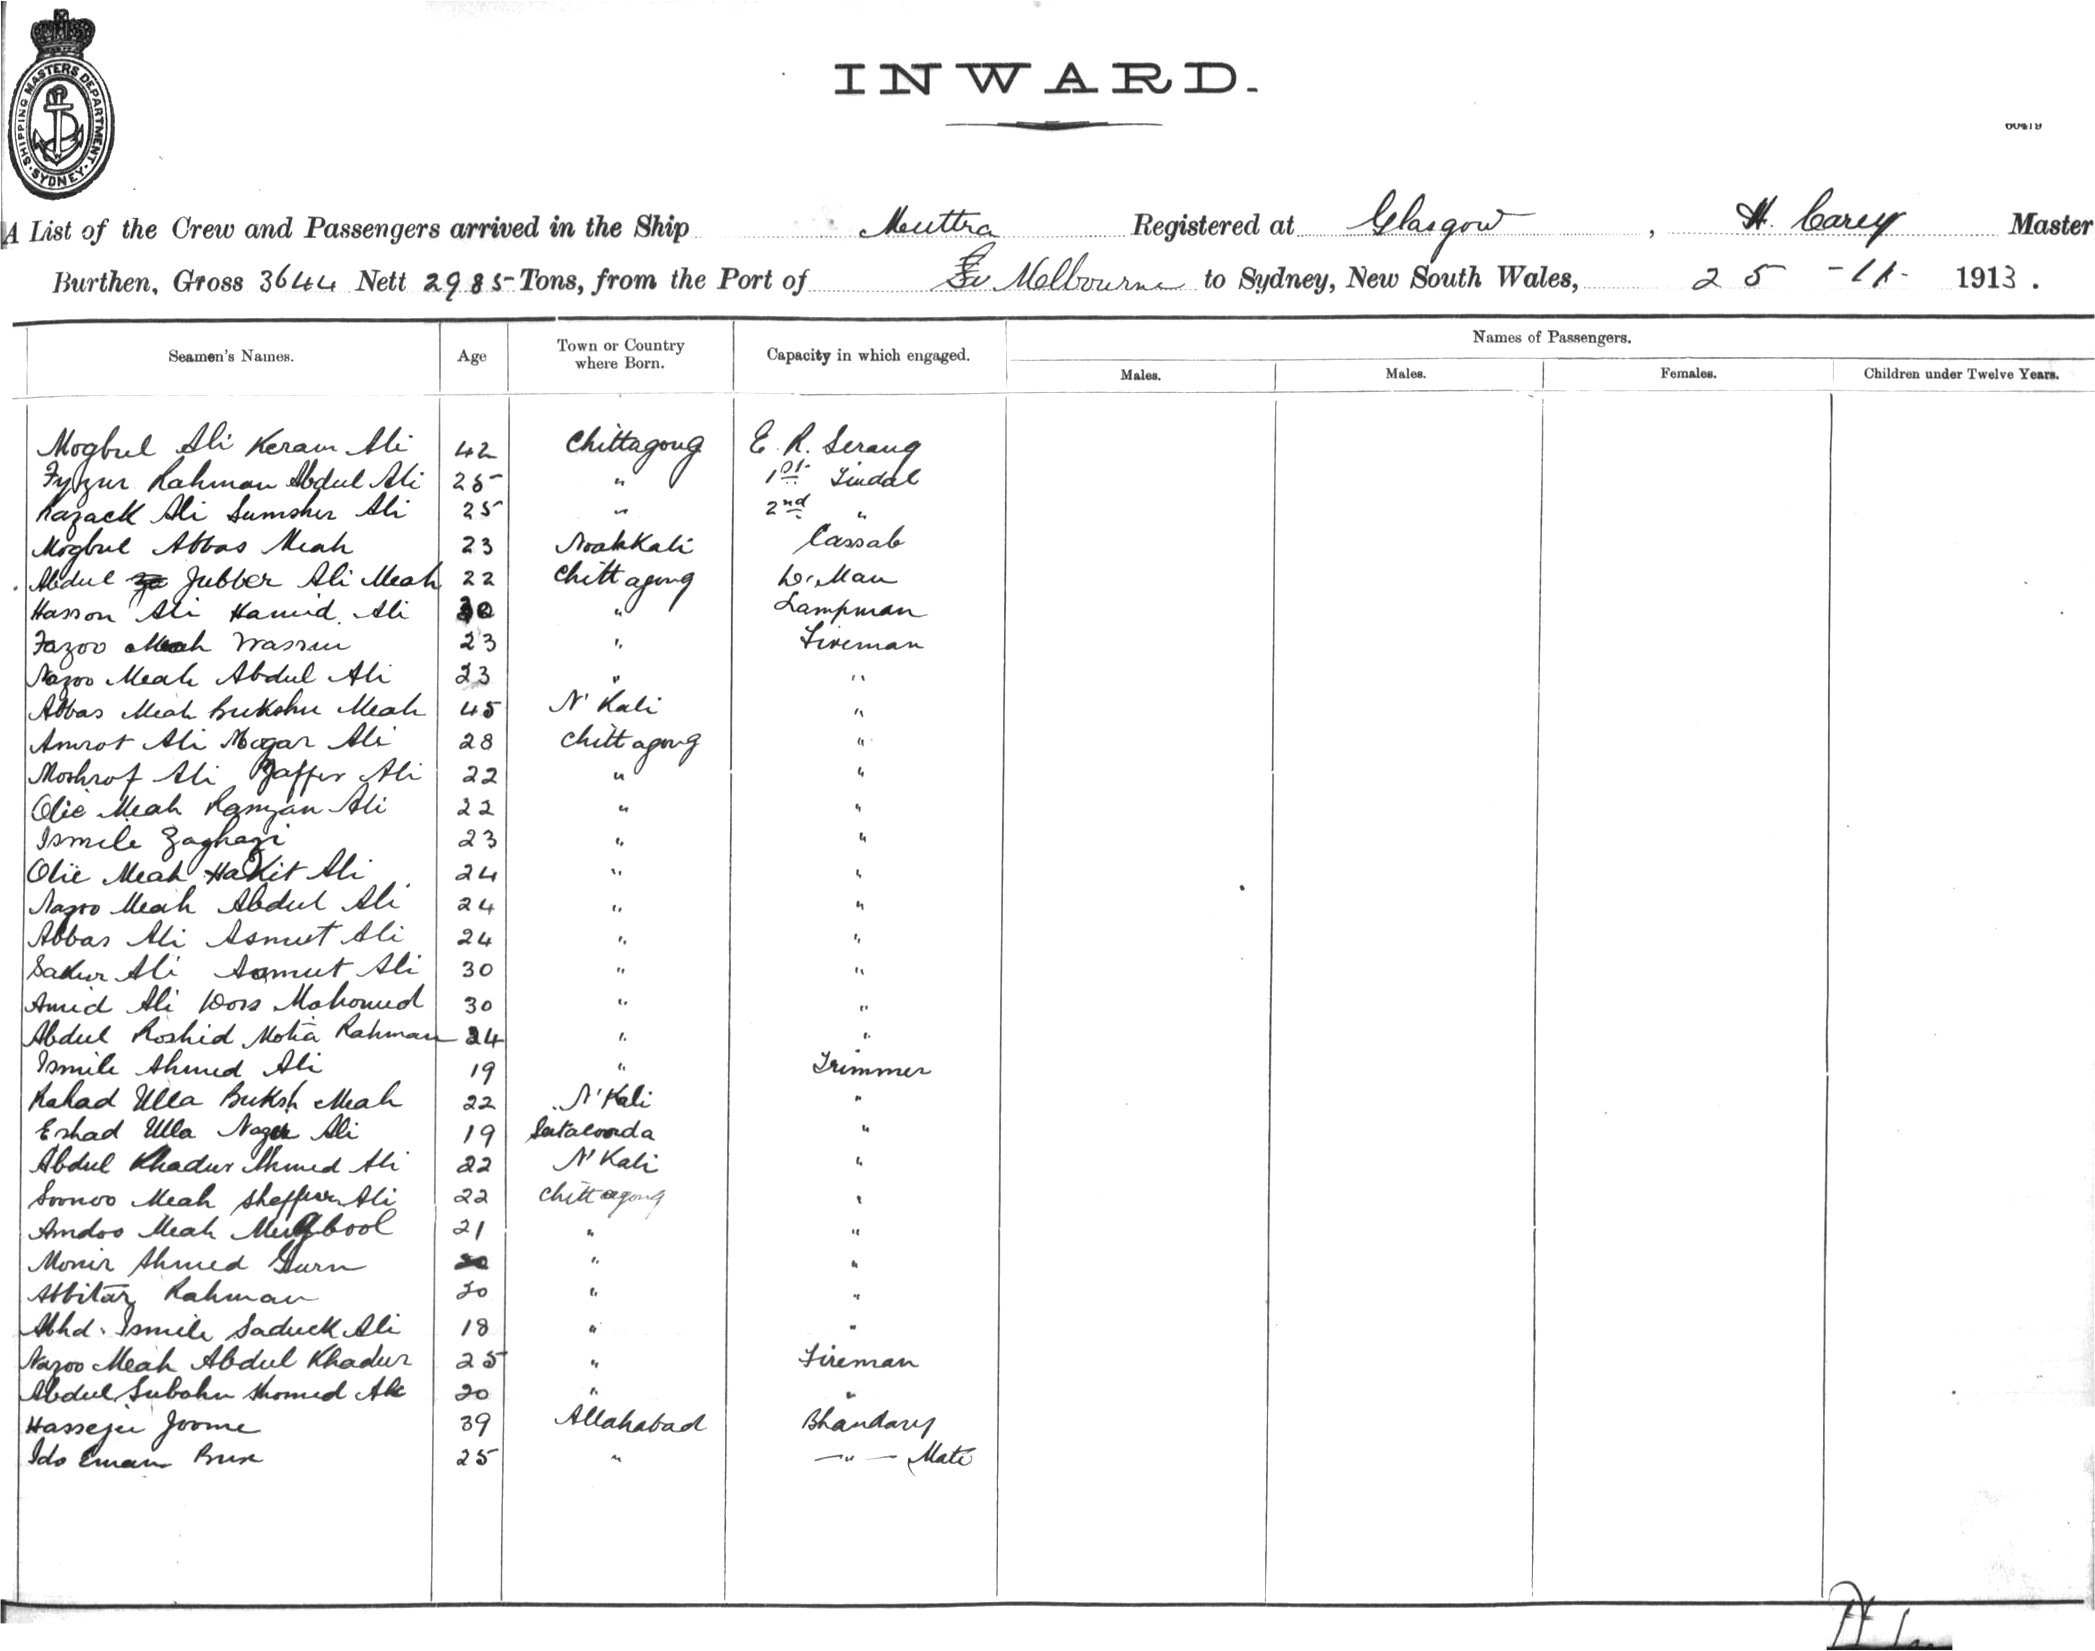 SHIPPING MASTERS DEPARTMENT
SYDNEY
INWARD.
A List of the Crew and Passengers arrived in the Ship Muttra Registered at Glasgow, H. Carey Master
Burthen, Gross 3644 Nett 2985 Tons, from the Port of Melbourne to Sydney, New South Wales, 25 - 11 - 1913.
Names of Passengers.
Seamen's Names. Age Town or Country where Born. Capacity in which engaged. Males. Males. Females. Children under Twelve Years.
Mogbul Ali Keram Ali 42 Chittagong E. R. Serang
Fyzur Rahman Abdul Ali 25 " 1st Tindal
Razack Ali Sumsher Ali 25 " 2nd "
Mogbul Abbas Meah 23 Noakkali Cassab
Abdul Jubber Ali Meah 22 Chittagong Man
Hasson Ali Hamid Ali " Lampman
Fazoo Meah 23 " Fireman
Nazoo Meah Abdul Ali 23 " "
Abbas Meah Bukshu Meah 45 N'Kali "
Amrot Ali Ali 28 Chittagong "
Moshrof Ali Jaffer Ali 22 " "
Olie Meah Ramzan Ali 22 " "
Ismile 23 " "
Olie Meah Ali 24 " "
Nazoo Meah Abdul Ali 24 " "
Abbas Ali Asmut Ali 24 " "
Sadur Ali Asmut Ali 30 " "
Amid Ali Dors Mahomed 30 " "
Abdul Roshid Motia Rahman 24 " "
Ismile Ahmed Ali 19 " Trimmer
Rahad Ulla Buksh Meah 22 N'Kali "
Ershad Ulla Ali 19 "
Abdul Khadur Ahmed Ali 22 N'Kali "
Soonoo Meah Ali 22 Chittagong "
Amdoo Meah Mugbool 21 " "
Monir Ahmed " "
Rahman 20 " "
Ismile Saduck Ali 18 " "
Nazoo Meah Abdul Khadur 25 " Fireman
Abdul Subahn 20 " "
Joome 39 Allahabad Bhandary
Ido Eman Bux 25 " — " — Mate